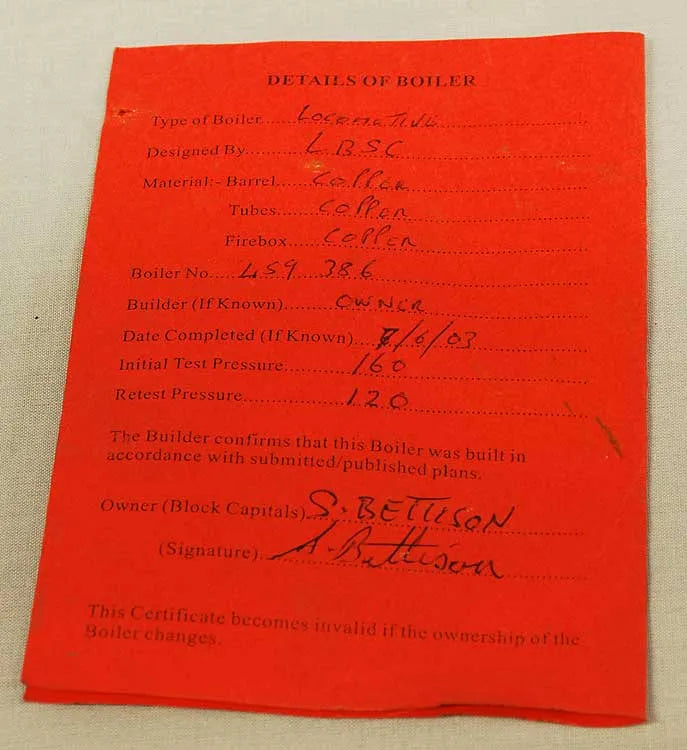 DETAILS OF BOILER
Type of Boiler....LOCOMOTIVE
Designed By....LBSC
Material:- Barrel....COPPER
Tubes....COPPER
Firebox....COPPER
Boiler No....LS9 386
Builder (If Known)....OWNER
Date Completed (If Known)....7/6/03
Initial Test Pressure....160
Retest Pressure....120
The Builder confirms that this Boiler was built in
accordance with submitted/published plans.
Owner (Block Capitals)....S. BETTISON
(Signature)....S. Bettison
This Certificate becomes invalid if the ownership of the
Boiler changes.